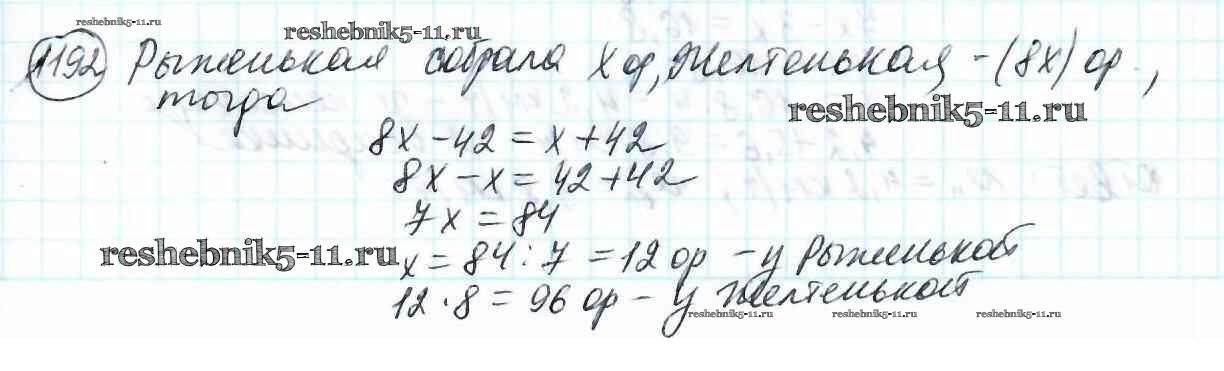 reshebnik5-11.ru
reshebnik5-11.ru
1192 Рыженькая собрала x ор, Желтенькая - (8x) ор.,
тогда
reshebnik5-11.ru
8x - 42 = x + 42
8x - x = 42 + 42
7x = 84
reshebnik5-11.ru
x = 84 : 7 = 12 ор - у Рыженькой
12 · 8 = 96 ор - у Желтенькой
reshebnik5-11.ru
reshebnik5-11.ru
reshebnik5-11.ru